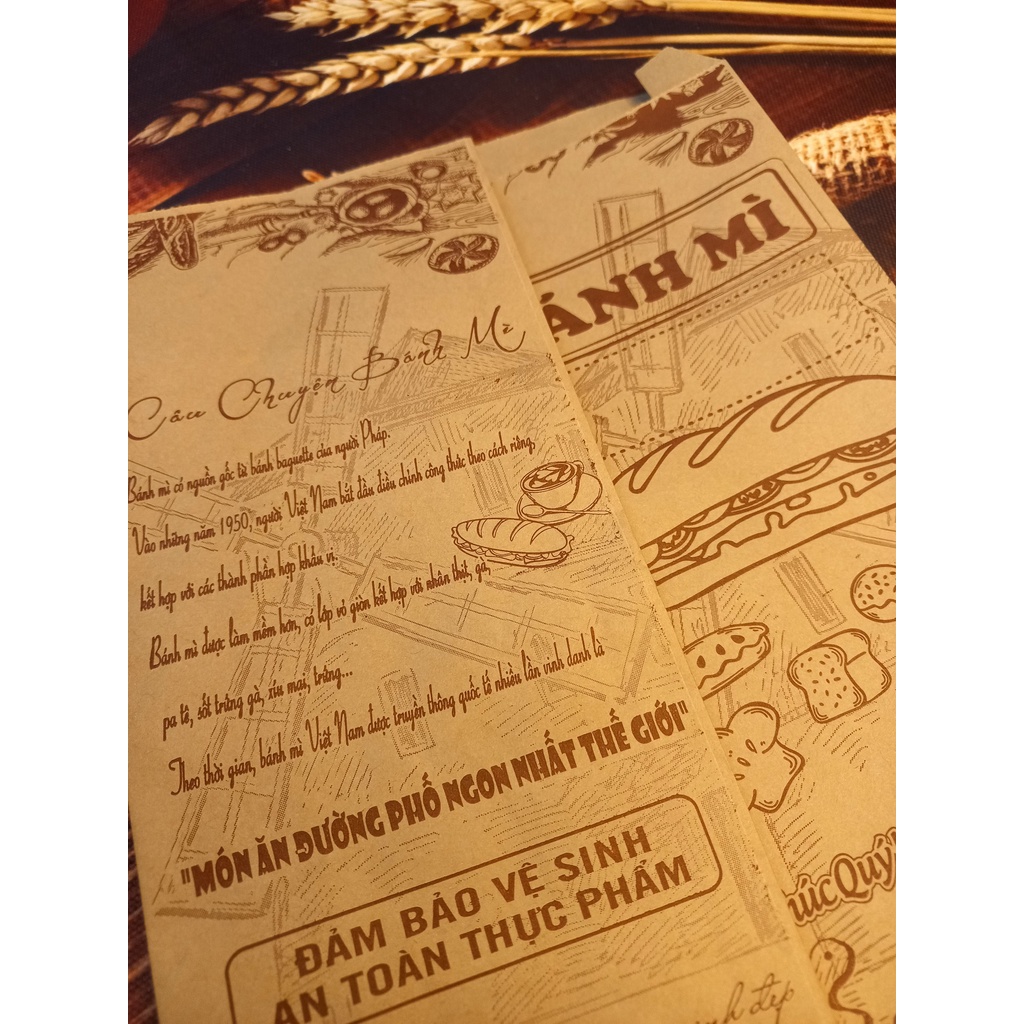 Câu Chuyện Bánh Mì
Bánh mì có nguồn gốc từ bánh baguette của người Pháp.
Vào những năm 1950, người Việt Nam bắt đầu điều chỉnh công thức theo cách riêng,
kết hợp với các thành phần hợp khẩu vị.
Bánh mì được làm mềm hơn, có lớp vỏ giòn kết hợp với nhân thịt, gà,
pa tê, sốt trứng gà, xíu mại, trứng...
Theo thời gian, bánh mì Việt Nam được truyền thông quốc tế nhiều lần vinh danh là
"MÓN ĂN ĐƯỜNG PHỐ NGON NHẤT THẾ GIỚI"
ĐẢM BẢO VỆ SINH
AN TOÀN THỰC PHẨM
đẹp
ÁNH MÌ
húc Quý